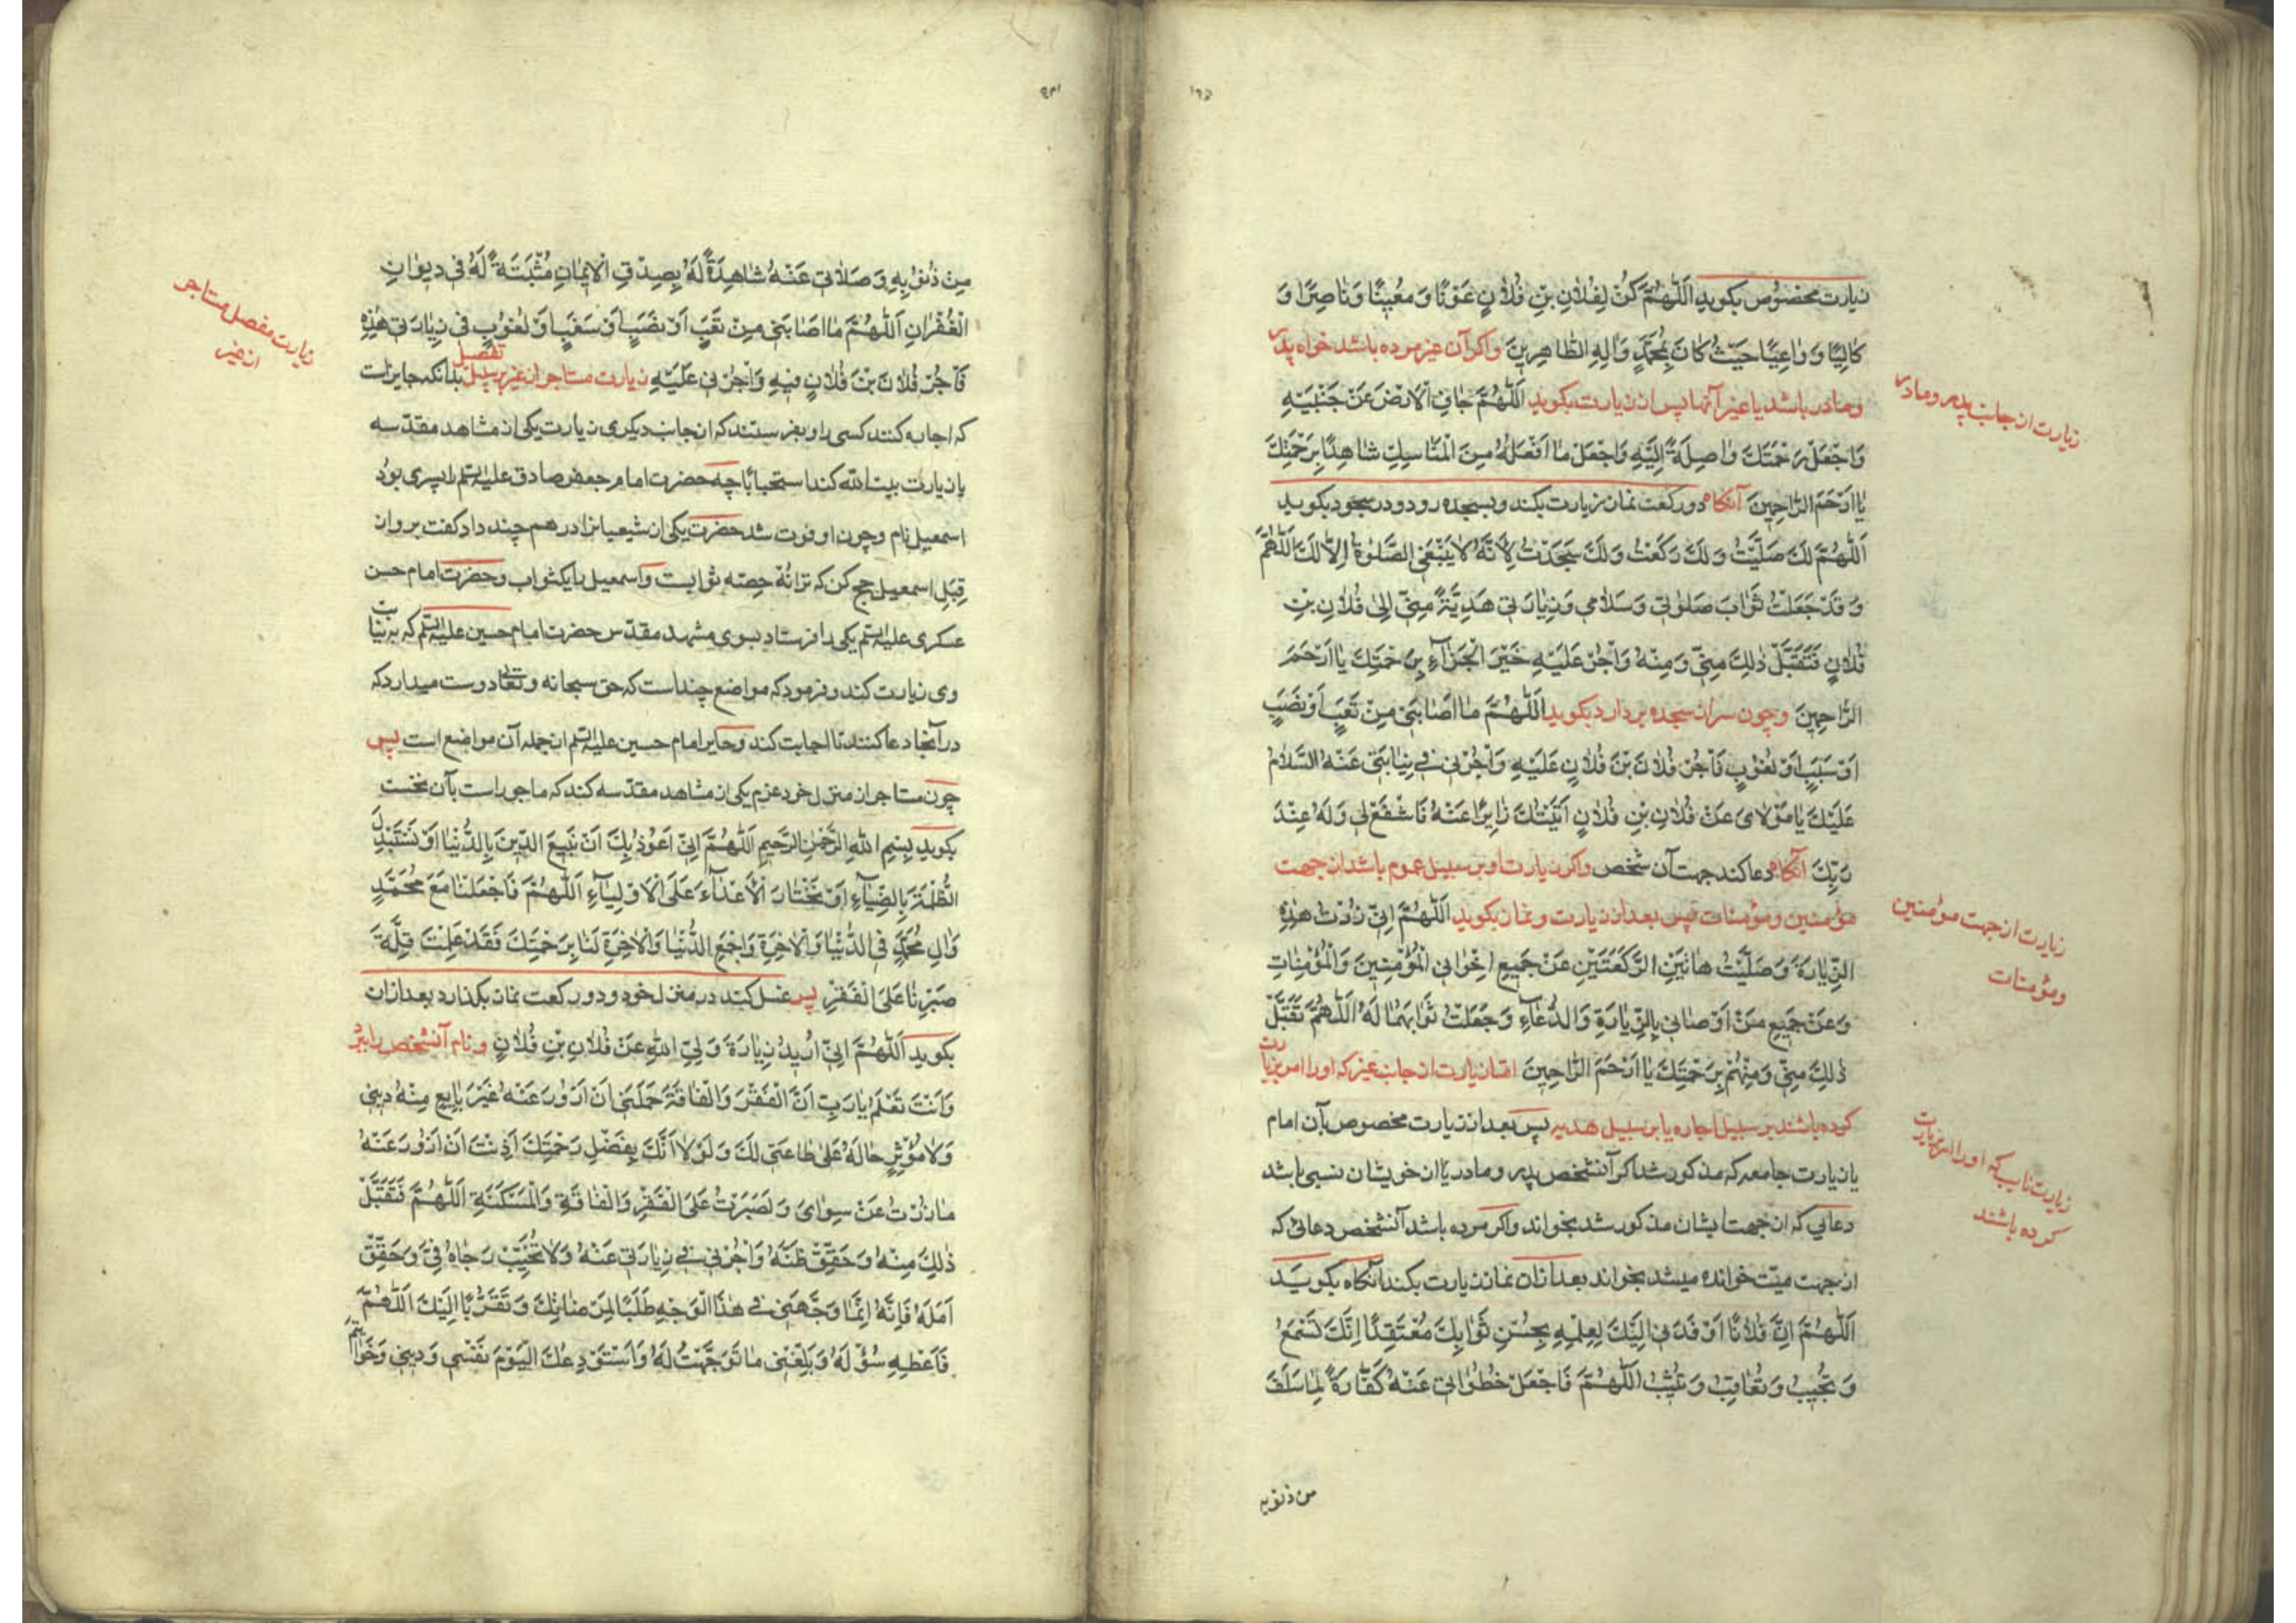 زیارت مخصوص بکوید اَللّٰهُمَّ كُنْ لِفُلَانِ بْنِ فُلَانٍ عَوْنًا وَ مُعِينًا وَ نَاصِرًا وَ
كَالِيًا وَ دَاعِيًا حَيْثُ كَانَ بِمُحَمَّدٍ وَ اٰلِهِ الطَّاهِرِينَ واکر آن غیر مرده باشد خواه پدر
ومادر باشد یا غیر آنها پس از زیارت بکوید اَللّٰهُمَّ جَافِ الْاَرْضَ عَنْ جَنْبَيْهِ
زیارت از جانب پدر و مادر
وَاجْعَلْ رَحْمَتَكَ وَاصِلَةً اِلَيْهِ وَاجْعَلْ مَا اَفْعَلُهُ مِنَ الْمَنَاسِكِ شَاهِدًا بِرَحْمَتِكَ
يَا اَرْحَمَ الرَّاحِمِينَ آنکاه دو رکعت نماز زیارت بکند و بسجده رود و در سجود بکوید
اَللّٰهُمَّ لَكَ صَلَّيْتُ وَ لَكَ رَكَعْتُ وَ لَكَ سَجَدْتُ لِاَنَّهُ لَا يَنْبَغِي الصَّلٰوةُ اِلَّا لَكَ اَللّٰهُمَّ
وَ قَدْ جَعَلْتُ ثَوَابَ صَلٰوتِي وَ سَلَامِي وَ زِيَارَتِي هَدِيَّةً مِنِّي اِلٰى فُلَانِ بْنِ
فُلَانٍ فَتَقَبَّلْ ذٰلِكَ مِنِّي وَ مِنْهُ وَ اَجْرِ عَلَيْهِ خَيْرَ الْجَزَاءِ بِرَحْمَتِكَ يَا اَرْحَمَ
الرَّاحِمِينَ وچون سر از سجده بردارد بکوید اَللّٰهُمَّ مَا اَصَابَنِي مِنْ تَعَبٍ اَوْ نَصَبٍ
اَوْ سَغَبٍ اَوْ لُغُوبٍ فَأْجُرْ فُلَانَ بْنَ فُلَانٍ عَلَيْهِ وَ اْجُرْنِي فِي نِيَابَتِي عَنْهُ السَّلَامُ
عَلَيْكَ يَا مَوْلَايَ عَنْ فُلَانِ بْنِ فُلَانٍ اَتَيْتُكَ زَايِرًا عَنْهُ فَاشْفَعْ لِي وَ لَهُ عِنْدَ
رَبِّكَ آنکاه دعا کند جهت آن شخص واکر زیارت او بر سبیل عموم باشد از جهت
مؤمنین ومؤمنات پس بعد از زیارت و نماز بکوید اَللّٰهُمَّ اِنِّي زُرْتُ هٰذِهِ
زیارت از جهت مؤمنین
ومؤمنات
الزِّيَارَةَ وَ صَلَّيْتُ هَاتَيْنِ الرَّكْعَتَيْنِ عَنْ جَمِيعِ اِخْوَانِي الْمُؤْمِنِينَ وَالْمُؤْمِنَاتِ
وَ عَنْ جَمِيعِ مَنْ اَوْصَانِي بِالزِّيَارَةِ وَ الدُّعَاءِ وَ جَعَلْتُ ثَوَابَهُمَا لَهُ اَللّٰهُمَّ تَقَبَّلْ
ذٰلِكَ مِنِّي وَ مِنْهُمْ بِرَحْمَتِكَ يَا اَرْحَمَ الرَّاحِمِينَ امّا زیارت از جانب غیر که او را امر بزیارت
کرده باشند بر سبیل اجاره یا بر سبیل هدیه پس بعد از زیارت مخصوص بآن امام
زیارت نایب که او را امر بزیارت
کرده باشند
یا زیارت جامعه که مذکور شد اکر آنشخص پدر و مادر یا از خویشان نسبی باشد
دعایی که از جهت ایشان مذکور شد بخواند واکر مرده باشد آنشخص دعائی که
از جهت میّت خوانده میشد بخواند بعد از آن نماز زیارت بکند آنکاه بکوید
اَللّٰهُمَّ اِنَّ فُلَانًا اَوْفَدَنِي اِلَيْكَ لِعِلْمِهِ بِحُسْنِ ثَوَابِكَ مُعْتَقِدًا اِنَّكَ تَسْمَعُ
وَ تُجِيبُ وَ تُعَاقِبُ وَ تُثِيبُ اَللّٰهُمَّ فَاجْعَلْ خُطُوَاتِي عَنْهُ كَفَّارَةً لِمَا سَلَفَ
من ذنوبه
مِنْ ذُنُوبِهِ وَ صَلَاتِي عَنْهُ شَاهِدَةً لَهُ بِصِدْقِ الْاِيمَانِ مُثْبَتَةً لَهُ فِي دِيوَانِ
الْغُفْرَانِ اَللّٰهُمَّ مَا اَصَابَنِي مِنْ تَعَبٍ اَوْ نَصَبٍ اَوْ سَغَبٍ اَوْ لُغُوبٍ فِي زِيَارَتِي هٰذِهِ
فَأْجُرْ فُلَانَ بْنَ فُلَانٍ فِيهِ وَاْجُرْنِي عَلَيْهِ زیارت مستاجر از غیر بر سبیل تفصیل بدانکه جایز است
زیارت مفصل مستاجر
از غیر
که اجاره کنند کسی را و بفرستند که از جانب دیکری زیارت یکی از مشاهد مقدّسه
یا زیارت بیت الله کند استحبابًا چه حضرت امام جعفر صادق علیه السلم را پسری بود
اسمعیل نام و چون او فوت شد حضرت یکی از شیعیانرا درهم چند داد کفت برو از
قِبَل اسمعیل حج کن که ترا نُه حصّه ثوابست و اسمعیل را یک ثواب و حضرت امام حسن
عسکری علیه السلم یکی را فرستاد بسوی مشهد مقدّس حضرت امام حسین علیه السلم که به نیابت
وی زیارت کند و فرمود که مواضع چند است که حق سبحانه و تعالی دوست میدارد که
در آنجا دعا کنند تا اجابت کند و حایر امام حسین علیه السلم از جمله آن مواضع است پس
چون مستاجر از منزل خرد عزم یکی از مشاهد مقدّسه کند که ماجور است بآن نخست
بکوید بِسْمِ اللّٰهِ الرَّحْمٰنِ الرَّحِيمِ اَللّٰهُمَّ اِنِّي اَعُوذُ بِكَ اَنْ نَبِيعَ الدِّينَ بِالدُّنْيَا اَوْ نَسْتَبْدِلَ
الظُّلْمَةَ بِالضِّيَاءِ اَوْ نَخْتَارَ الْاَعْدَاءَ عَلَى الْاَوْلِيَاءِ اَللّٰهُمَّ فَاجْعَلْنَا مَعَ مُحَمَّدٍ
وَ اٰلِ مُحَمَّدٍ فِي الدُّنْيَا وَ الْاٰخِرَةِ وَ اجْمَعِ الدُّنْيَا وَ الْاٰخِرَةِ لَنَا بِرَحْمَتِكَ فَقَدْ عَلِمْتَ قِلَّةَ
صَبْرِنَا عَلَى الْفَقْرِ پس غسل کند در منزل خود و دو رکعت نماز بکذارد بعد از آن
بکوید اَللّٰهُمَّ اِنِّي اُرِيدُ زِيَارَةَ وَلِيِّ اللّٰهِ عَنْ فُلَانِ بْنِ فُلَانٍ و نام آنشخص را ببرد
وَ اَنْتَ تَعْلَمُ يَا رَبِّ اَنَّ الْفَقْرَ وَ الْفَاقَةَ حَمَلَنِي اَنْ اَزُورَ عَنْهُ غَيْرَ بَايِعٍ مِنْهُ دِينِي
وَ لَا مُؤْثِرٍ حَالَهُ عَلٰى طَاعَتِي لَكَ وَ لَوْلَا اَنَّكَ بِفَضْلِ رَحْمَتِكَ اَذِنْتَ اَنْ اَزُورَ عَنْهُ
مَا زُرْتُ عَنْ سِوَايَ وَ لَصَبَرْتُ عَلَى الْفَقْرِ وَ الْفَاقَةِ وَ الْمَسْكَنَةِ اَللّٰهُمَّ فَتَقَبَّلْ
ذٰلِكَ مِنْهُ وَ حَقِّقْ ظَنَّهُ وَ اْجُرْنِي فِي زِيَارَتِي عَنْهُ وَ لَا تُخَيِّبْ رَجَاهُ فِيَّ وَ حَقِّقْ
اَمَلَهُ فَاِنَّهُ اِنَّمَا وَجَّهَنِي فِي هٰذَا الْوَجْهِ طَلَبًا لِمَرْضَاتِكَ وَ تَقَرُّبًا اِلَيْكَ اَللّٰهُمَّ
فَاَعْطِهِ سُؤْلَهُ وَ بَلِّغْنِي مَا تَوَجَّهْتُ لَهُ وَ اَسْتَوْدِعُكَ الْيَوْمَ نَفْسِي وَ دِينِي وَ خَوَاتِيمَ